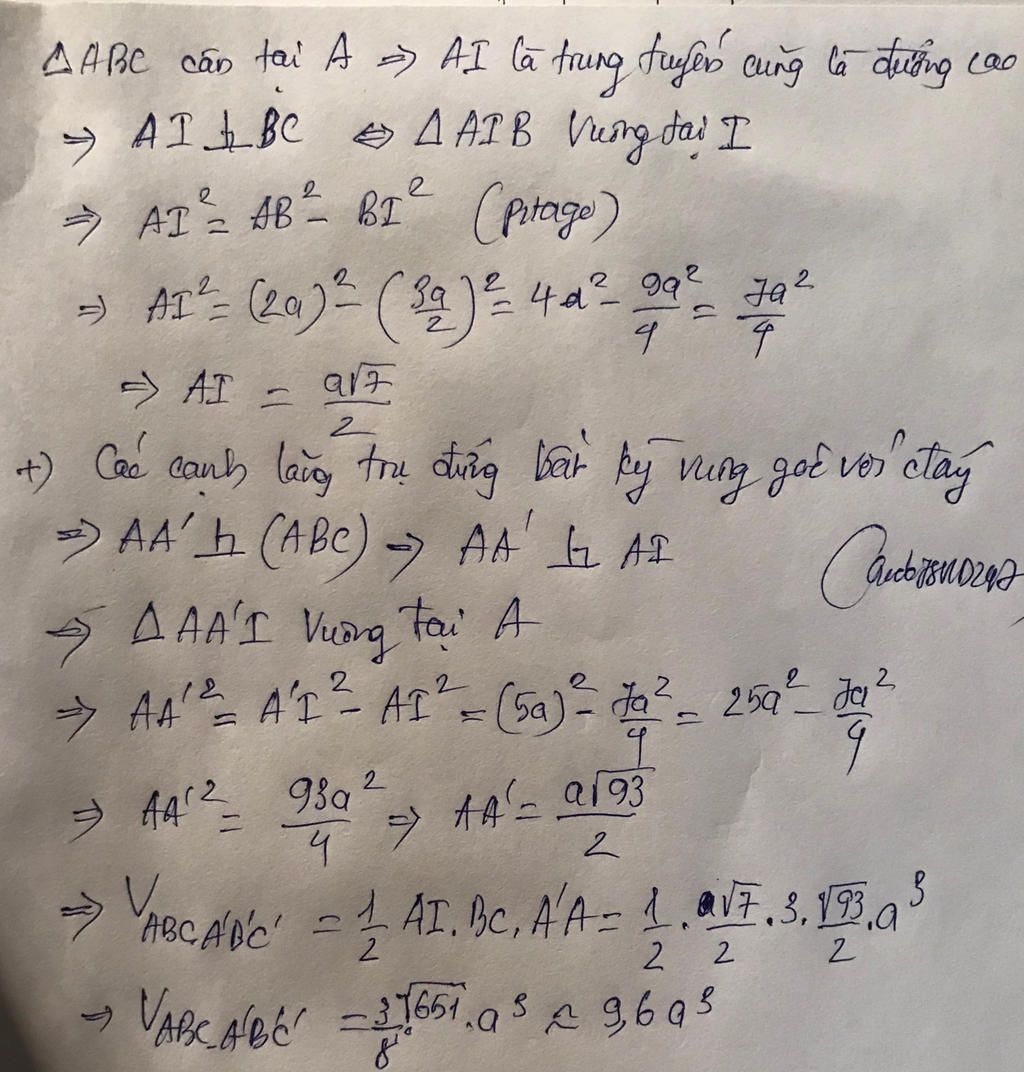 ΔABC cân tại A ⇒ AI là trung tuyến cũng là đường cao
⇒ AI ⊥ BC ⇔ ΔAIB Vuông tại I
⇒ AI² = AB² - BI² (Pitago)
⇒ AI² = (2a)² - (3a/2)² = 4a² - 9a²/4 = 7a²/4
⇒ AI = a√7/2
+) Các cạnh lăng trụ đứng bất kỳ vuông góc với đáy
⇒ AA' ⊥ (ABC) ⇒ AA' ⊥ AI
⇒ ΔAA'I Vuông tại A
⇒ AA'² = A'I² - AI² = (5a)² - 7a²/4 = 25a² - 7a²/4
⇒ AA'² = 93a²/4 ⇒ AA' = a√93/2
⇒ V ABC A'B'C' = 1/2 AI. BC. A'A = 1/2 . a√7/2 . 3. √93/2 . a³
⇒ V ABC.A'B'C' = 3√651/8 . a³ ≈ 9,6a³